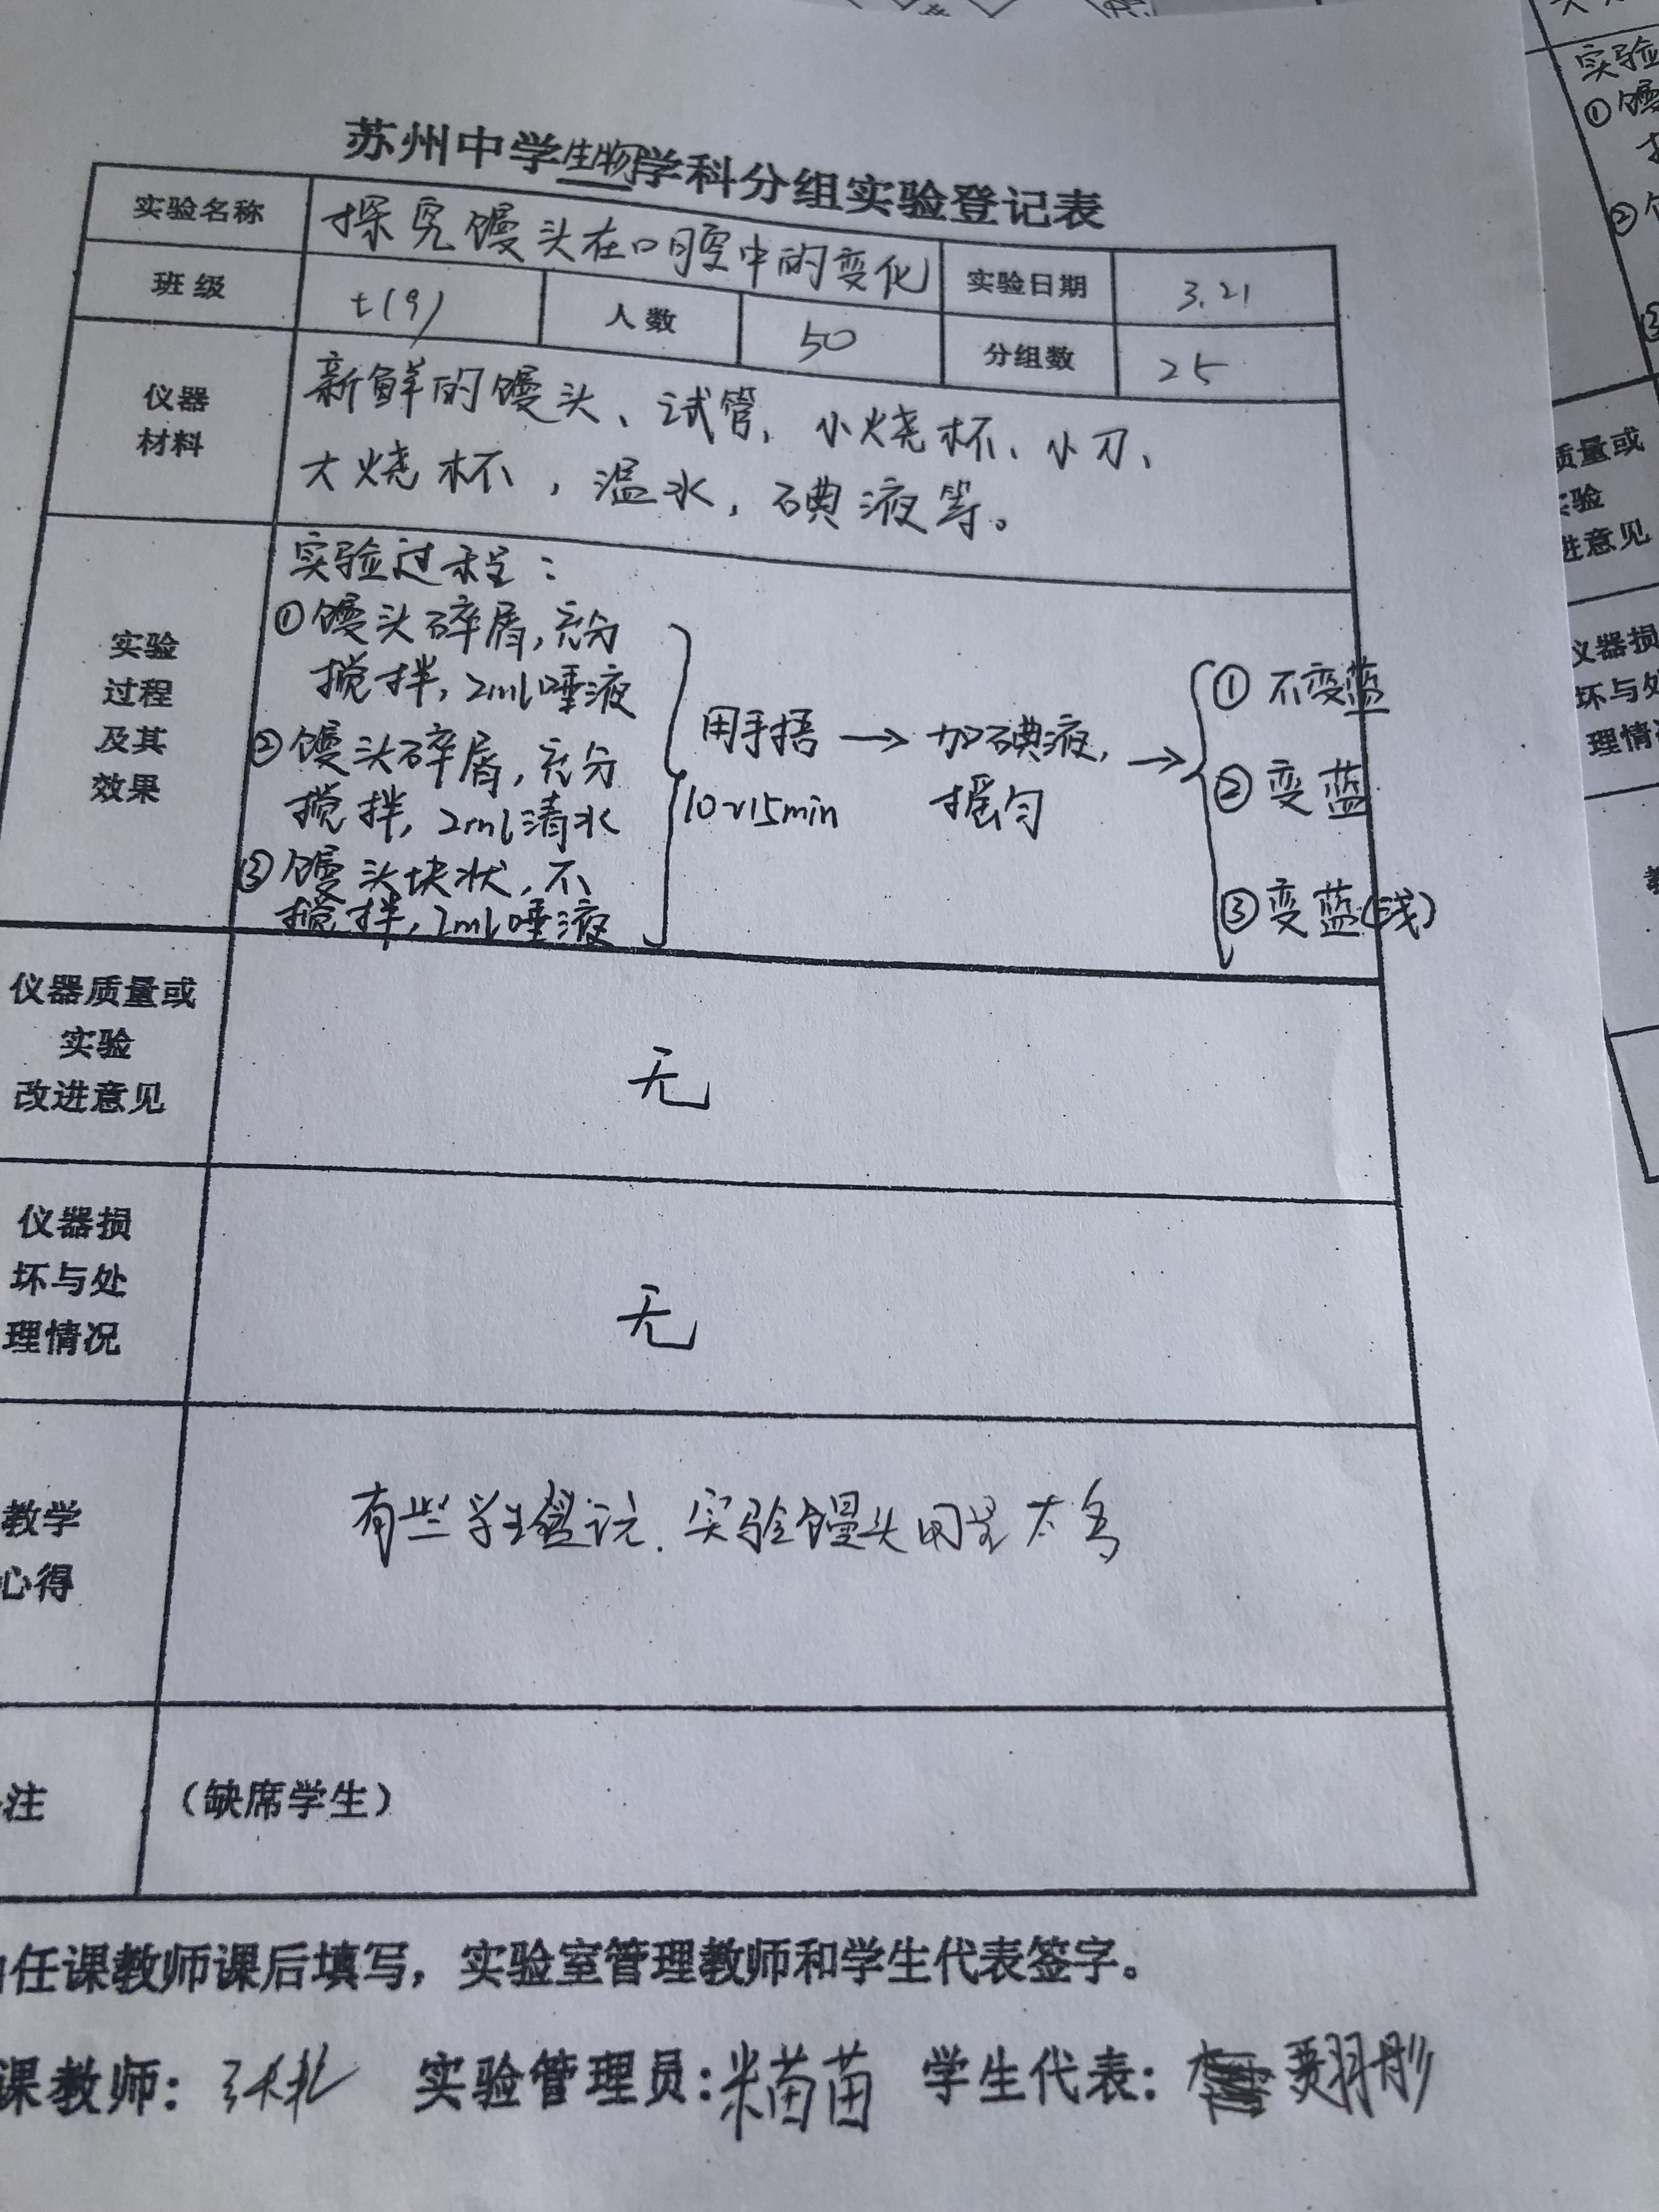 苏州中学生物学科分组实验登记表
实验名称 探究馒头在口腔中的变化 实验日期 3.21
班级 七(9) 人数 50 分组数 25
仪器
材料
新鲜的馒头、试管、小烧杯、小刀、
大烧杯，温水，碘液等。
实验
过程
及其
效果
实验过程：
①馒头碎屑，充分
搅拌，2ml唾液
②馒头碎屑，充分
搅拌，2ml清水
③馒头块状，不
搅拌，2ml唾液
用手捂
10~15min
→ 加碘液，
摇匀
→
① 不变蓝
② 变蓝
③ 变蓝(浅)
仪器质量或
实验
改进意见
无
仪器损
坏与处
理情况
无
教学
心得
有些学生 实验馒头用量太多
注
（缺席学生）
任课教师课后填写，实验室管理教师和学生代表签字。
课教师： 实验管理员：米苗苗 学生代表：
实验
①馒
②
③
质量或
验
进意见
仪器损
坏与处
理情况